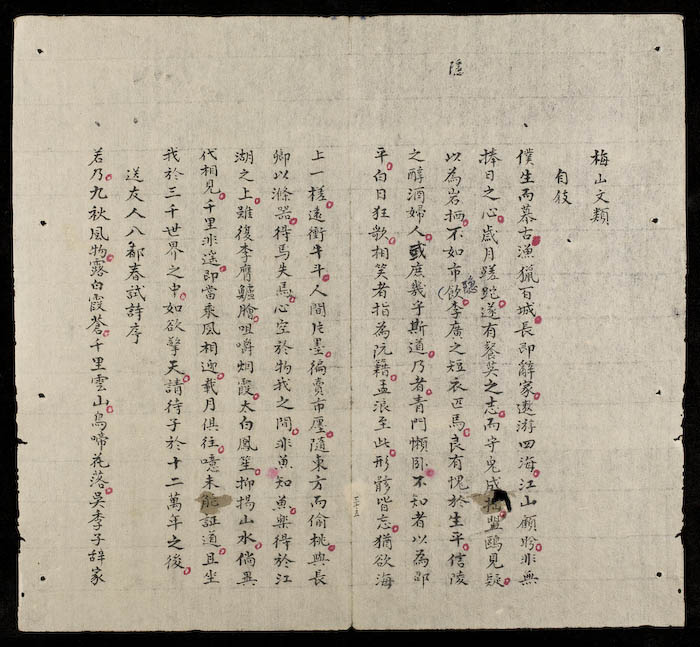 隱
梅山文類
自敘
僕生而慕古漁獵百城長即辭家遨游四海江山顧盼非無
捧日之心歲月蹉跎遂有餐英之志而守兔成 盟鷗見疑
以為岩栖不如市(飲李廣之短衣匹馬良有愧於生平信陵
隱
之醇酒婦人或庶幾乎斯道乃者青門懶卧不知者以為邵
平白日狂歌相笑者指為阮籍孟浪至此形骸皆忘猶欲海
上一槎遠衝牛斗人間片墨徧賣市廛隨東方而偷桃與長
卿以滌器得馬失馬心空於物我之間非魚知魚樂得於江
湖之上雖後李膺鱸膾咀嚼烟霞太白鳳笙抑揚山水倘異
代相見千里非遙即當乘風相迎载月俱往噫未能証道且坐
我於三千世界之中如欲擎天請待子於十二萬年之後
送友人入都春試詩序
若乃九秋風物露白霞蒼千里雲山鳥啼花落吳季子辞家